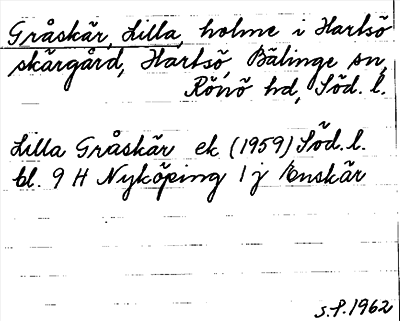 Gråskär, Lilla, holme i Hartsö
skärgård, Hartsö, Bälinge sn,
Rönö hd, Söd. l.
Lilla Gråskär ek (1959) Söd. l.
bl. 9 H Nyköping 1 j Enskär
S.P. 1962